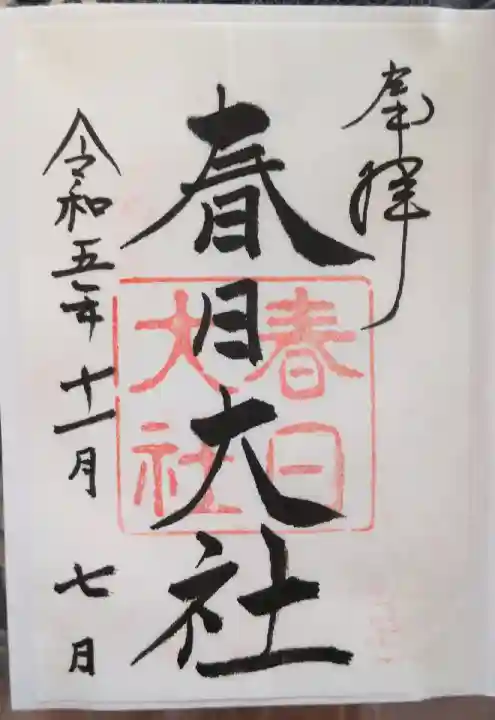 奉拝
春日大社
春日
大社
令和五年十一月七日